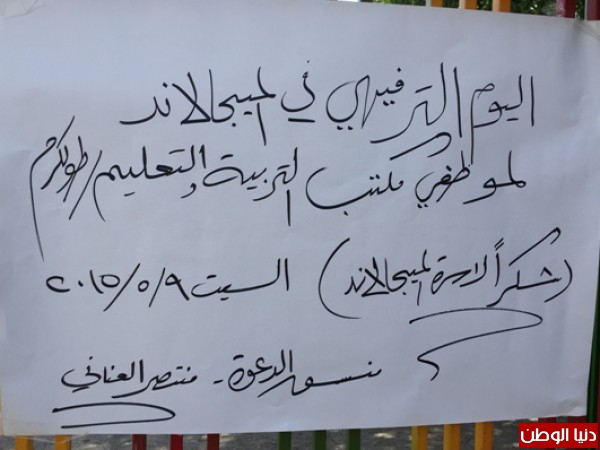 اليوم الترفيهي في الميجالاند
لموظفي مكتب التربية والتعليم/طولكرم
(شكراً لاسرة الميجالاند) السبت ٢٠١٥/٥/٩
منسق الدعوة - منتصر العناني
دنيا الوطن